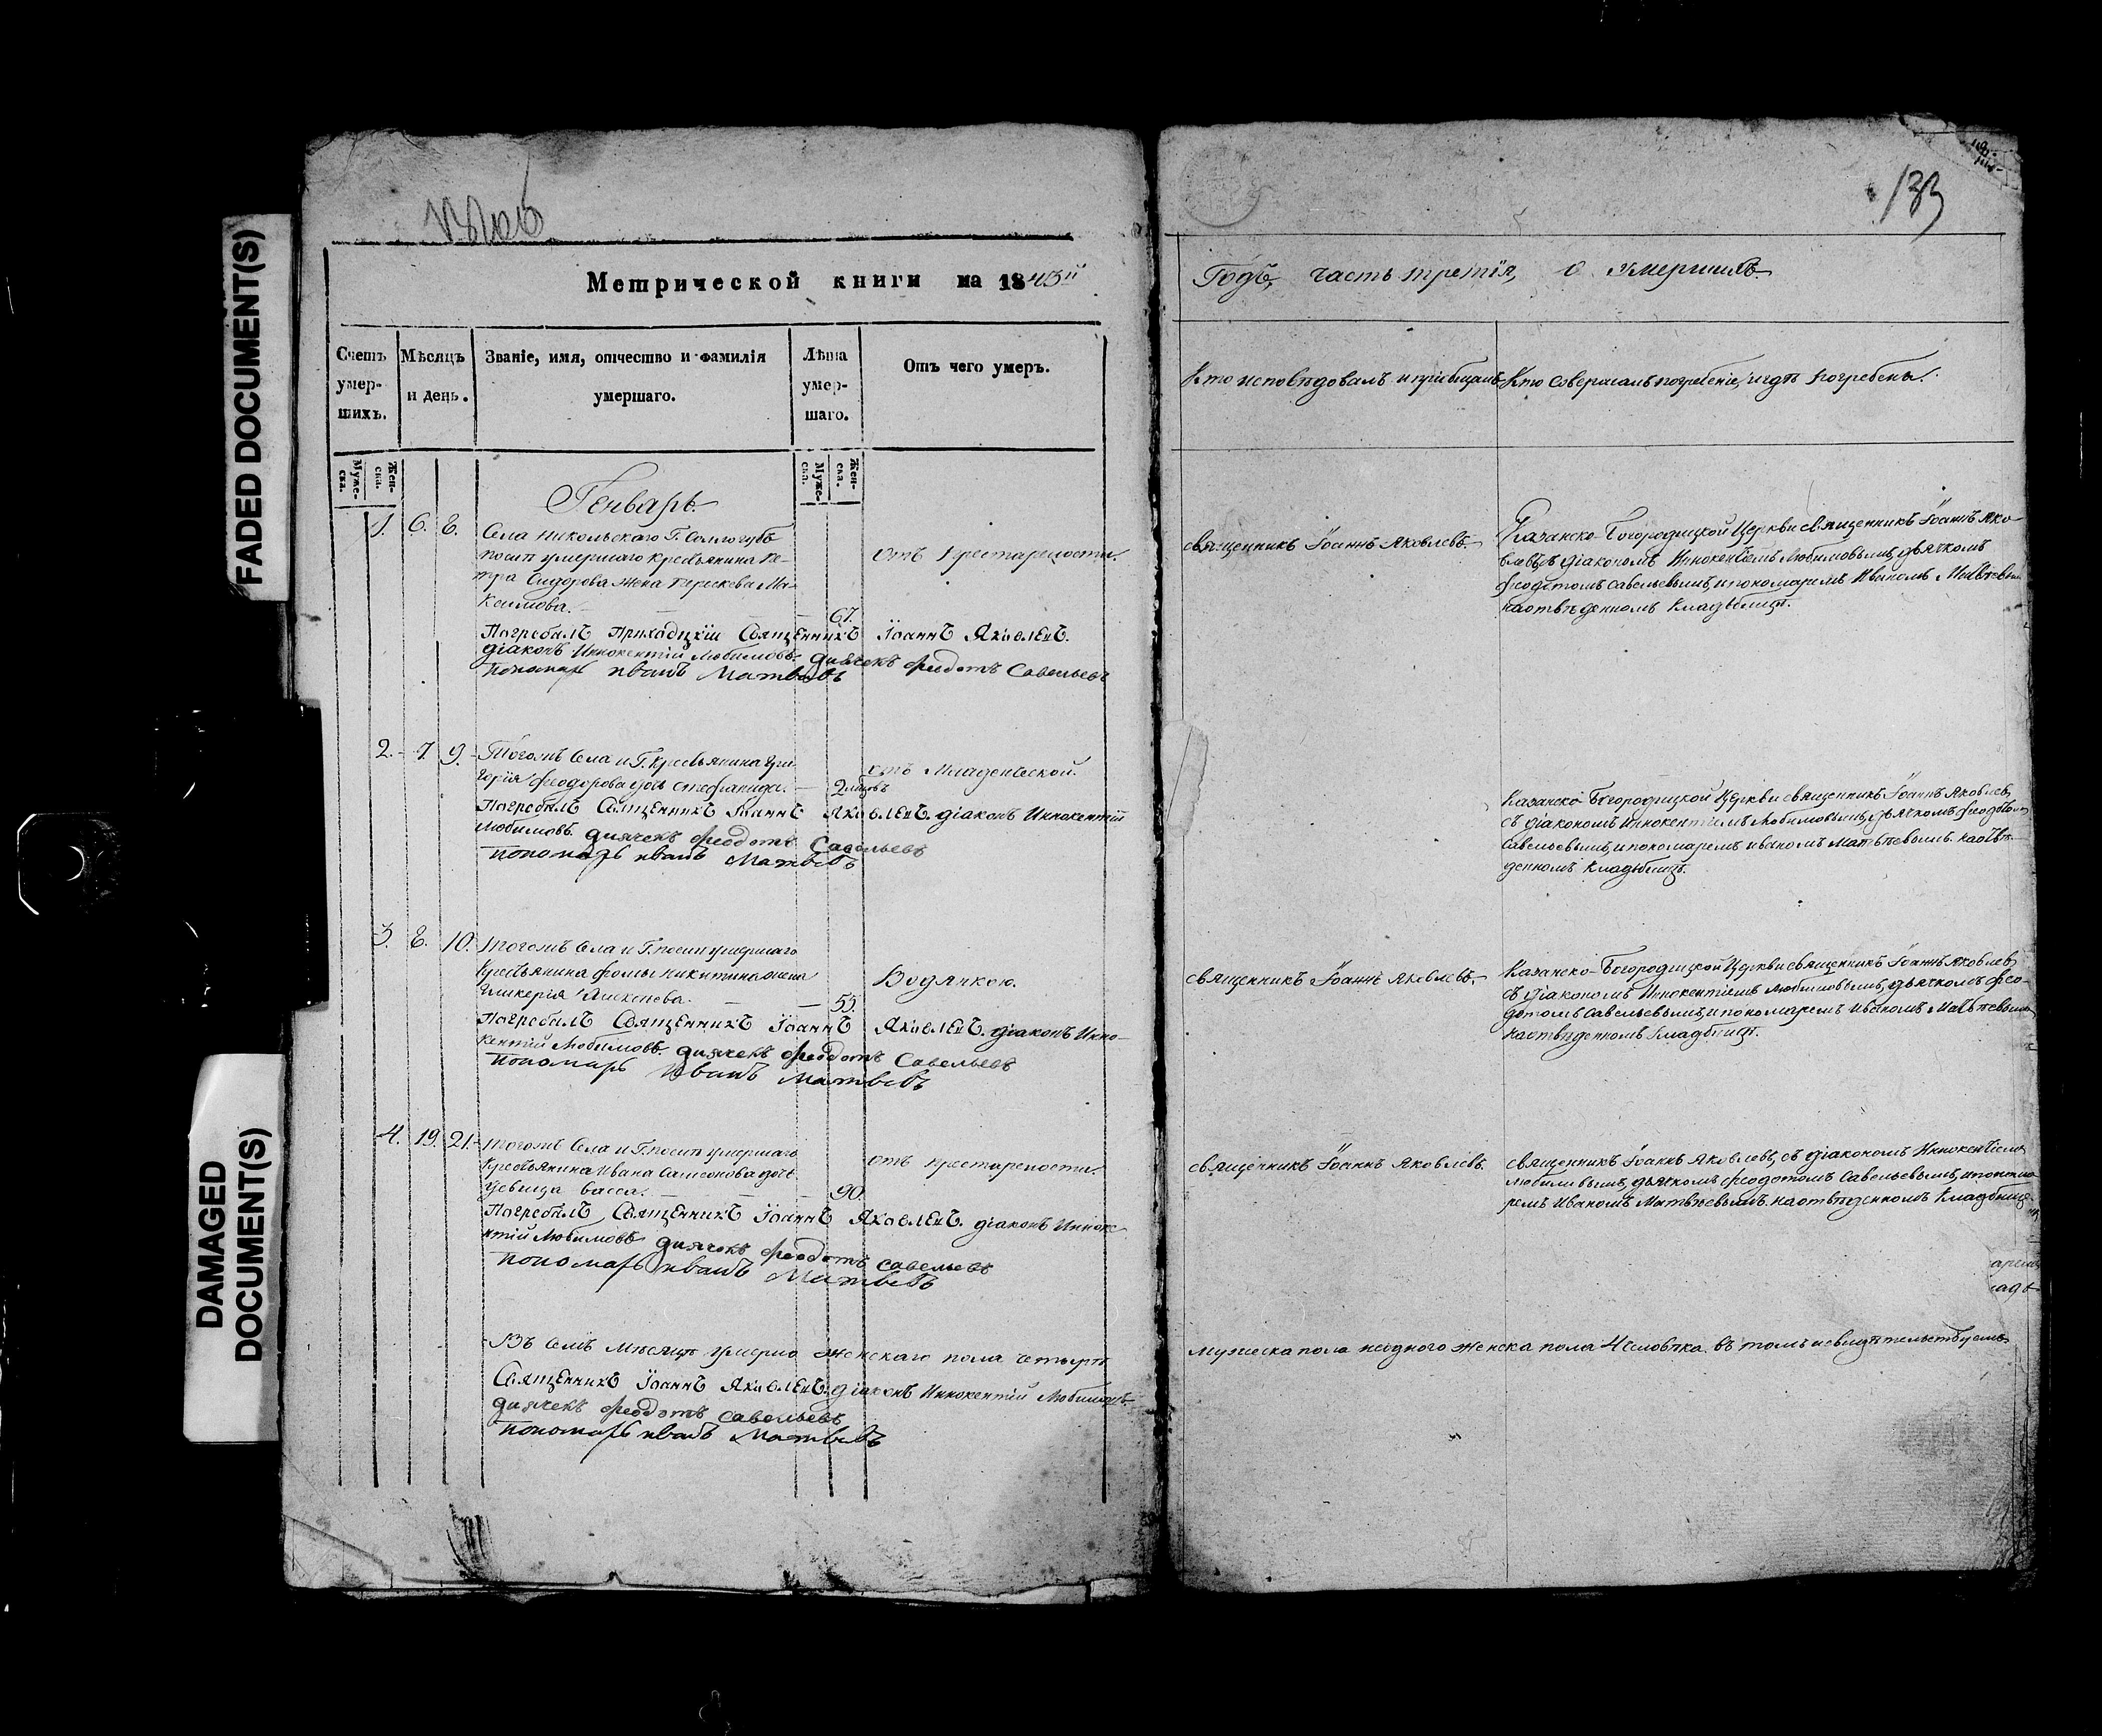 FADED DOCUMENT(S)
DAMAGED
DOCUMENT(S)
133
Метрической книги на 1843й
Годъ, часть третія, о умершихъ
Счетъ умер-шихъ.
Мѣсяцъ и день.
Званіе, имя, отчество и фамилія умершаго.
Лѣта умер-шаго.
Отъ чего умеръ.
Кто исповѣдовалъ и пріобщалъ
Кто совершалъ погребеніе, и гдѣ погребены.
Муже-ска.
Жен-ска.
Муже-ска.
Жен-ска.
Генварь
1. 6. 8.
Села Никольскаго Г. Соллогубъ
послѣ умершаго крестьянина Пе-
тра Сидорова жена Параскева Ма-
ксимова. 67.
отъ престарелости.
Погребалъ Приходцкій Священникъ Іоаннъ Яковлевъ.
діаконъ Иннокентій Любимовъ. дьячекъ Феодотъ Савельевъ
пономарь Иванъ Матвѣвъ
священникъ Іоаннъ Яковлевъ.
Казанско-Богородицкой Церкви священникъ Іоаннъ Яко-
влевъ, съ діакономъ Иннокентіемъ Любимовымъ, дьячкомъ
Феодотомъ Савельевымъ, и пономаремъ Иваномъ Матвѣевы
на отвѣденномъ кладбищѣ.
2. 7. 9.
Тогожъ Села и Г. Крестьянина Гри-
горія Феодорова дочь Стефанида. 2 мцовъ
отъ Младенческой.
Погребалъ Священникъ Іоаннъ Яковлевъ. діаконъ Иннокентій
Любимовъ. дьячекъ Феодотъ Савельевъ
пономарь Иванъ Матвѣвъ
Казанско Богородицкой Церкви священникъ Іоаннъ Яковлевъ,
съ діакономъ Иннокентіемъ Любимовымъ, дьячкомъ Феодотомъ
Савельевымъ, и пономаремъ Иваномъ Матвѣевымъ. на отвѣ-
денномъ кладбищѣ.
3. 8. 10.
Тогожъ Села и Г. послѣ умершаго
Крестьянина Фомы Никитина жена
Гликерія 55.
Водянкою.
Погребалъ Священникъ Іоаннъ Яковлевъ. діаконъ Инно-
кентій Любимовъ. дьячекъ Феодотъ Савельевъ
пономарь Иванъ Матвѣвъ
священникъ Іоаннъ Яковлевъ.
Казанско-Богородицкой Церкви священникъ Іоаннъ Яковлевъ,
съ діакономъ Иннокентіемъ Любимовымъ, дьячкомъ Фео-
дотомъ Савельевымъ, и пономаремъ Иваномъ Матвѣевымъ
на отвѣденномъ кладбищѣ.
4. 19. 21.
Тогожъ Села и Г. послѣ умершаго
Крестьянина Ивана Самсонова дочь
девица Васса. 90.
отъ престарелости.
Погребалъ Священникъ Іоаннъ Яковлевъ. діаконъ Иннокен-
нтій Любимовъ дьячекъ Феодотъ Савельевъ
пономарь Иванъ Матвѣвъ
священникъ Іоаннъ Яковлевъ.
священникъ Іоаннъ Яковлевъ, съ діакономъ Иннокентіемъ
Любимовымъ, дьячкомъ Феодотомъ Савельевымъ, и понома
ремъ Иваномъ Матвѣевымъ. на отвѣденномъ кладбищѣ
Въ семъ мѣсяцѣ умерло женскаго пола четыре
мужеска пола неодного женска пола 4 человѣка. въ томъ и свидѣтельствуемъ
Священникъ Іоаннъ Яковлевъ. діаконъ Иннокентій Любимовъ
дьячекъ Феодотъ Савельевъ
пономарь Иванъ Матвѣвъ